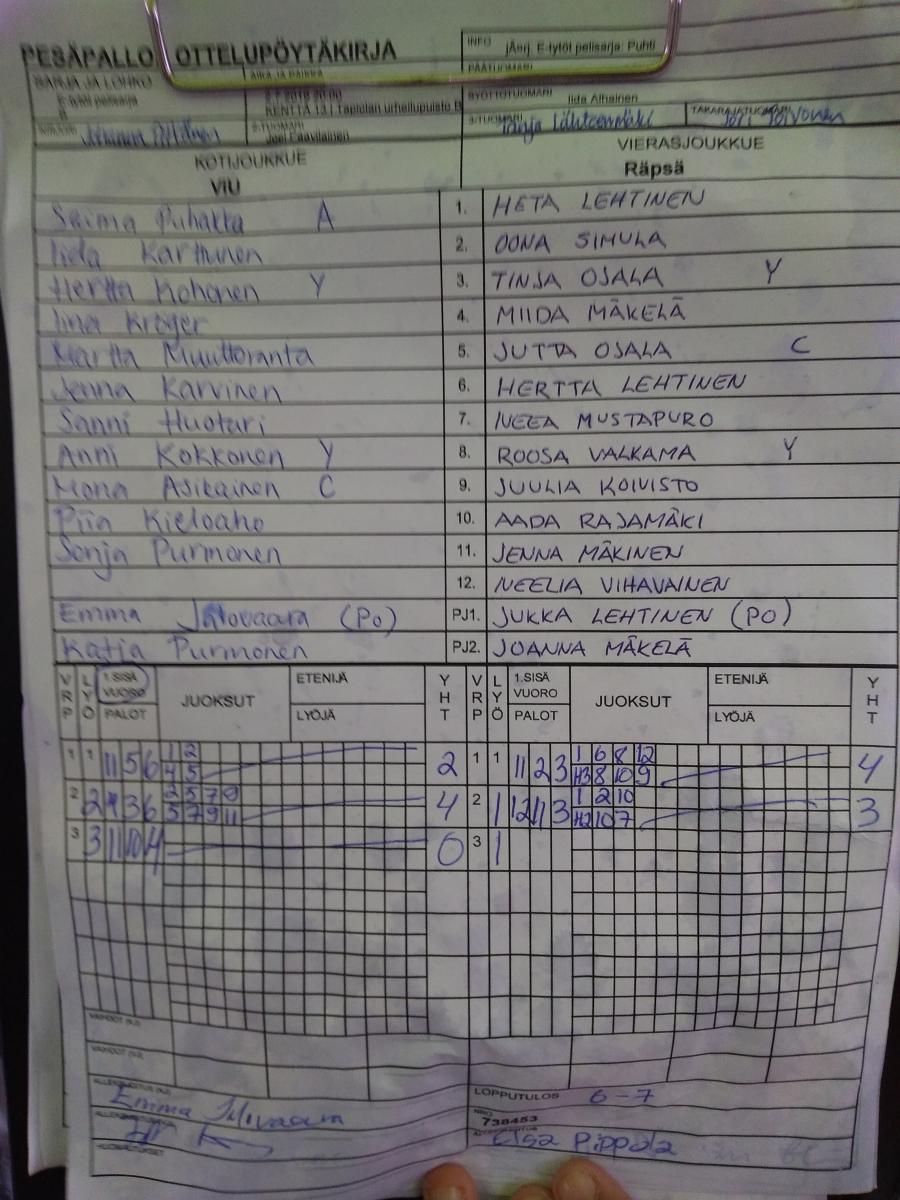 PESÄPALLO OTTELUPÖYTÄKIRJA
INFO jÄsrj. E-tytöt pelisarja: Puhti
SARJA JA LOHKO
AIKA JA PAIKKA
PÄÄTUOMARI
E-tytöt pelisarja
B
2.7.2019 20:00
KENTTÄ 13 | Tapiolan urheilupuisto B
SYÖTTÖTUOMARI Iida Alhainen
Johanna
2-TUOMARI
3-TUOMARI Tanja Lähteenmäki
TAKARAJATUOMARI
KOTIJOUKKUE
VIERASJOUKKUE
ViU
Räpsä
Saima Puhakka A 1. HETA LEHTINEN
Iida Karttunen 2. OONA SIMULA
Hertta Kohonen Y 3. TINJA OJALA Y
Iina Kröger 4. MIIDA MÄKELÄ
Martta Muuttoranta 5. JUTTA OJALA C
Jenna Karvinen 6. HERTTA LEHTINEN
Sanni Huotari 7. NEEA MUSTAPURO
Anni Kokkonen Y 8. ROOSA VALKAMA Y
Mona Asikainen C 9. JUULIA KOIVISTO
Piia Kieloaho 10. AADA RAJAMÄKI
Sonja Purmonen 11. JENNA MÄKINEN
12. NEELIA VIHAVAINEN
Emma Jalovaara (PO) PJ1. JUKKA LEHTINEN (PO)
Katja Purmonen PJ2. JOANNA MÄKELÄ
VRP LYÖ 1.SISÄ VUORO PALOT JUOKSUT ETENIJÄ LYÖJÄ YHT VRP LYÖ 1.SISÄ VUORO PALOT JUOKSUT ETENIJÄ LYÖJÄ YHT
1 1 11 5 6 1 2 2 1 1 11 2 3 1 6 8 12 4
4 5 H3 8 10 9
2 2 4 3 6 2 5 7 8 4 2 1 12 11 3 1 2 10 3
5 7 9 11 H2 10 7
3 3 11 10 4 0 3 1
VAIHDOT
VAIHDOT
Emma Jalovaara
LOPPUTULOS 6-7
NRO
738453
Elsa Pippola